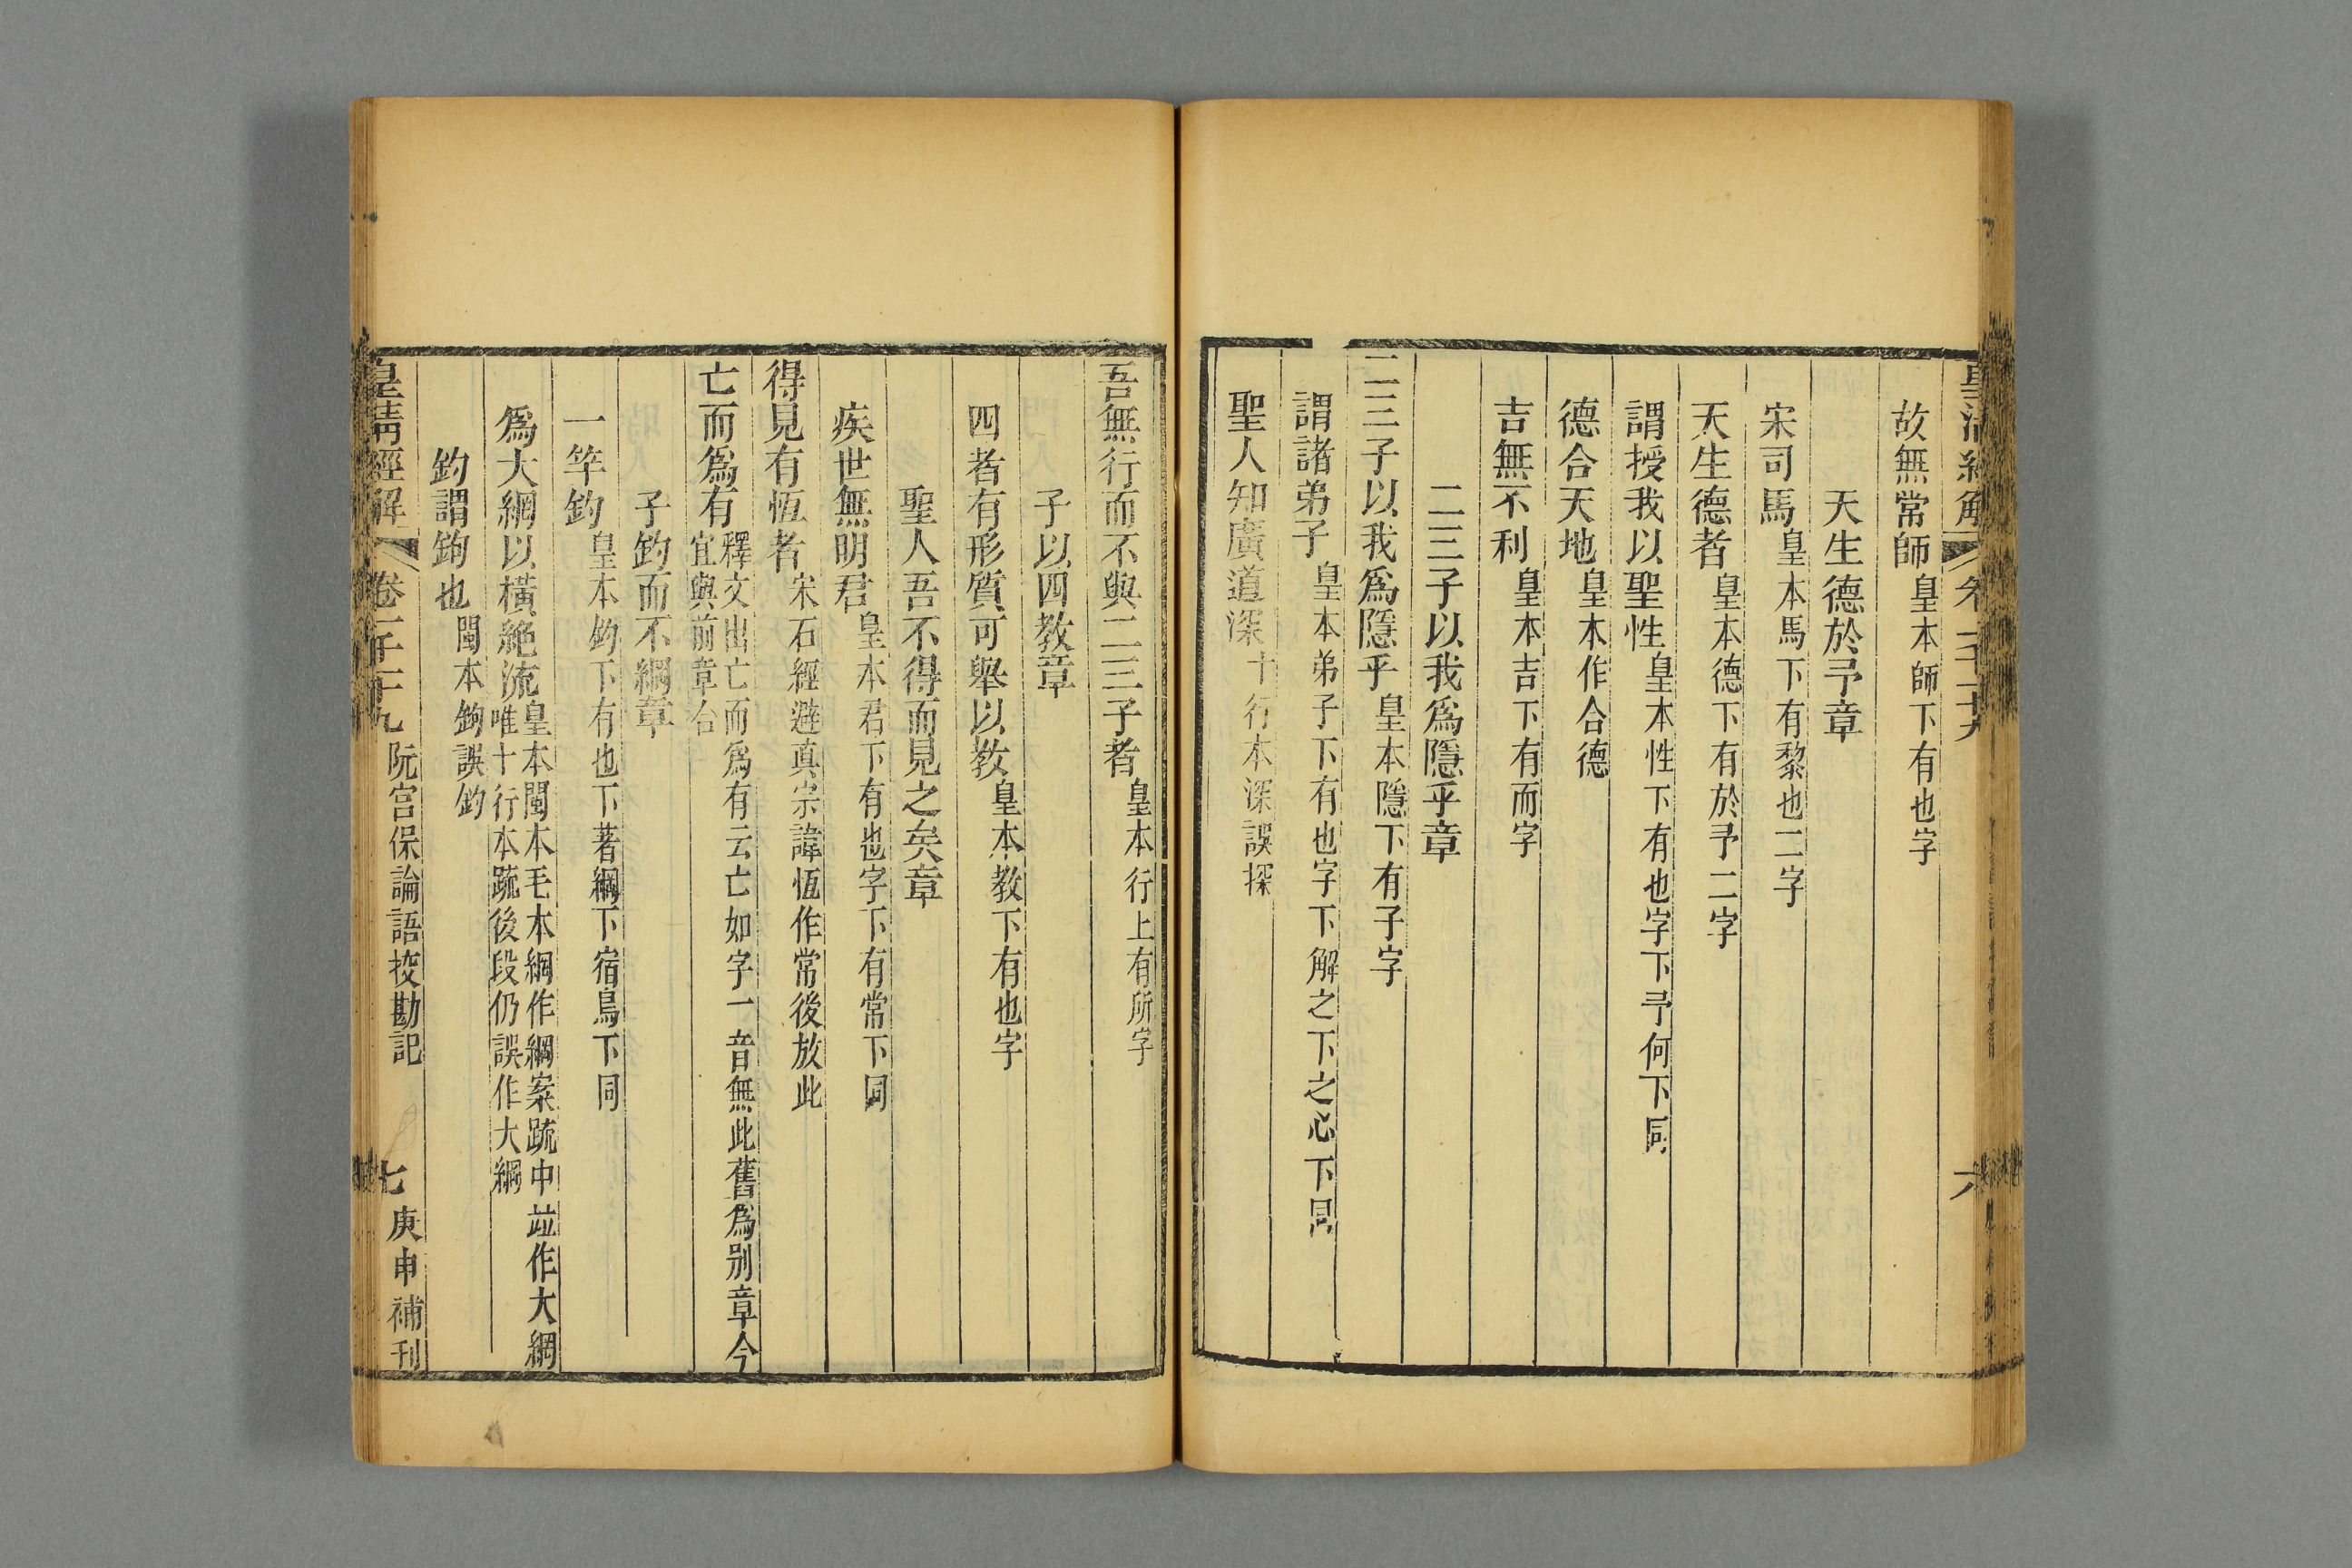 故無常師皇本師下有也字
天生德於予章
宋司馬皇本馬下有黎也二字
天生德者皇本德下有於予二字
謂授我以聖性皇本性下有也字下予何下同
德合天地皇本作合德
吉無不利皇本吉下有而字
二三子以我爲隱乎章
二三子以我爲隱乎皇本隱下有子字
謂諸弟子皇本弟子下有也字下解之下之必下同
聖人知廣道深十行本深誤探
吾無行而不與二三子者皇本行上有所字
子以四教章
四者有形質可舉以教皇本教下有也字
聖人吾不得而見之矣章
疾世無明君皇本君下有也字下有常下同
得見有恆者宋石經避真宗諱恆作常後放此
亡而爲有釋文出亡而爲有云亡如字一音無此舊爲別章今
宜與前章合
子釣而不綱章
一竿釣皇本釣下有也下著綱下宿鳥下同
爲大綱以橫絕流皇本閩本毛本網作綱案疏中竝作大綱
唯十行本疏後段仍誤作大網
釣謂鉤也閩本鉤誤釣
皇清經解 卷一千十九 阮宮保論語挍勘記 七 庚申補刊